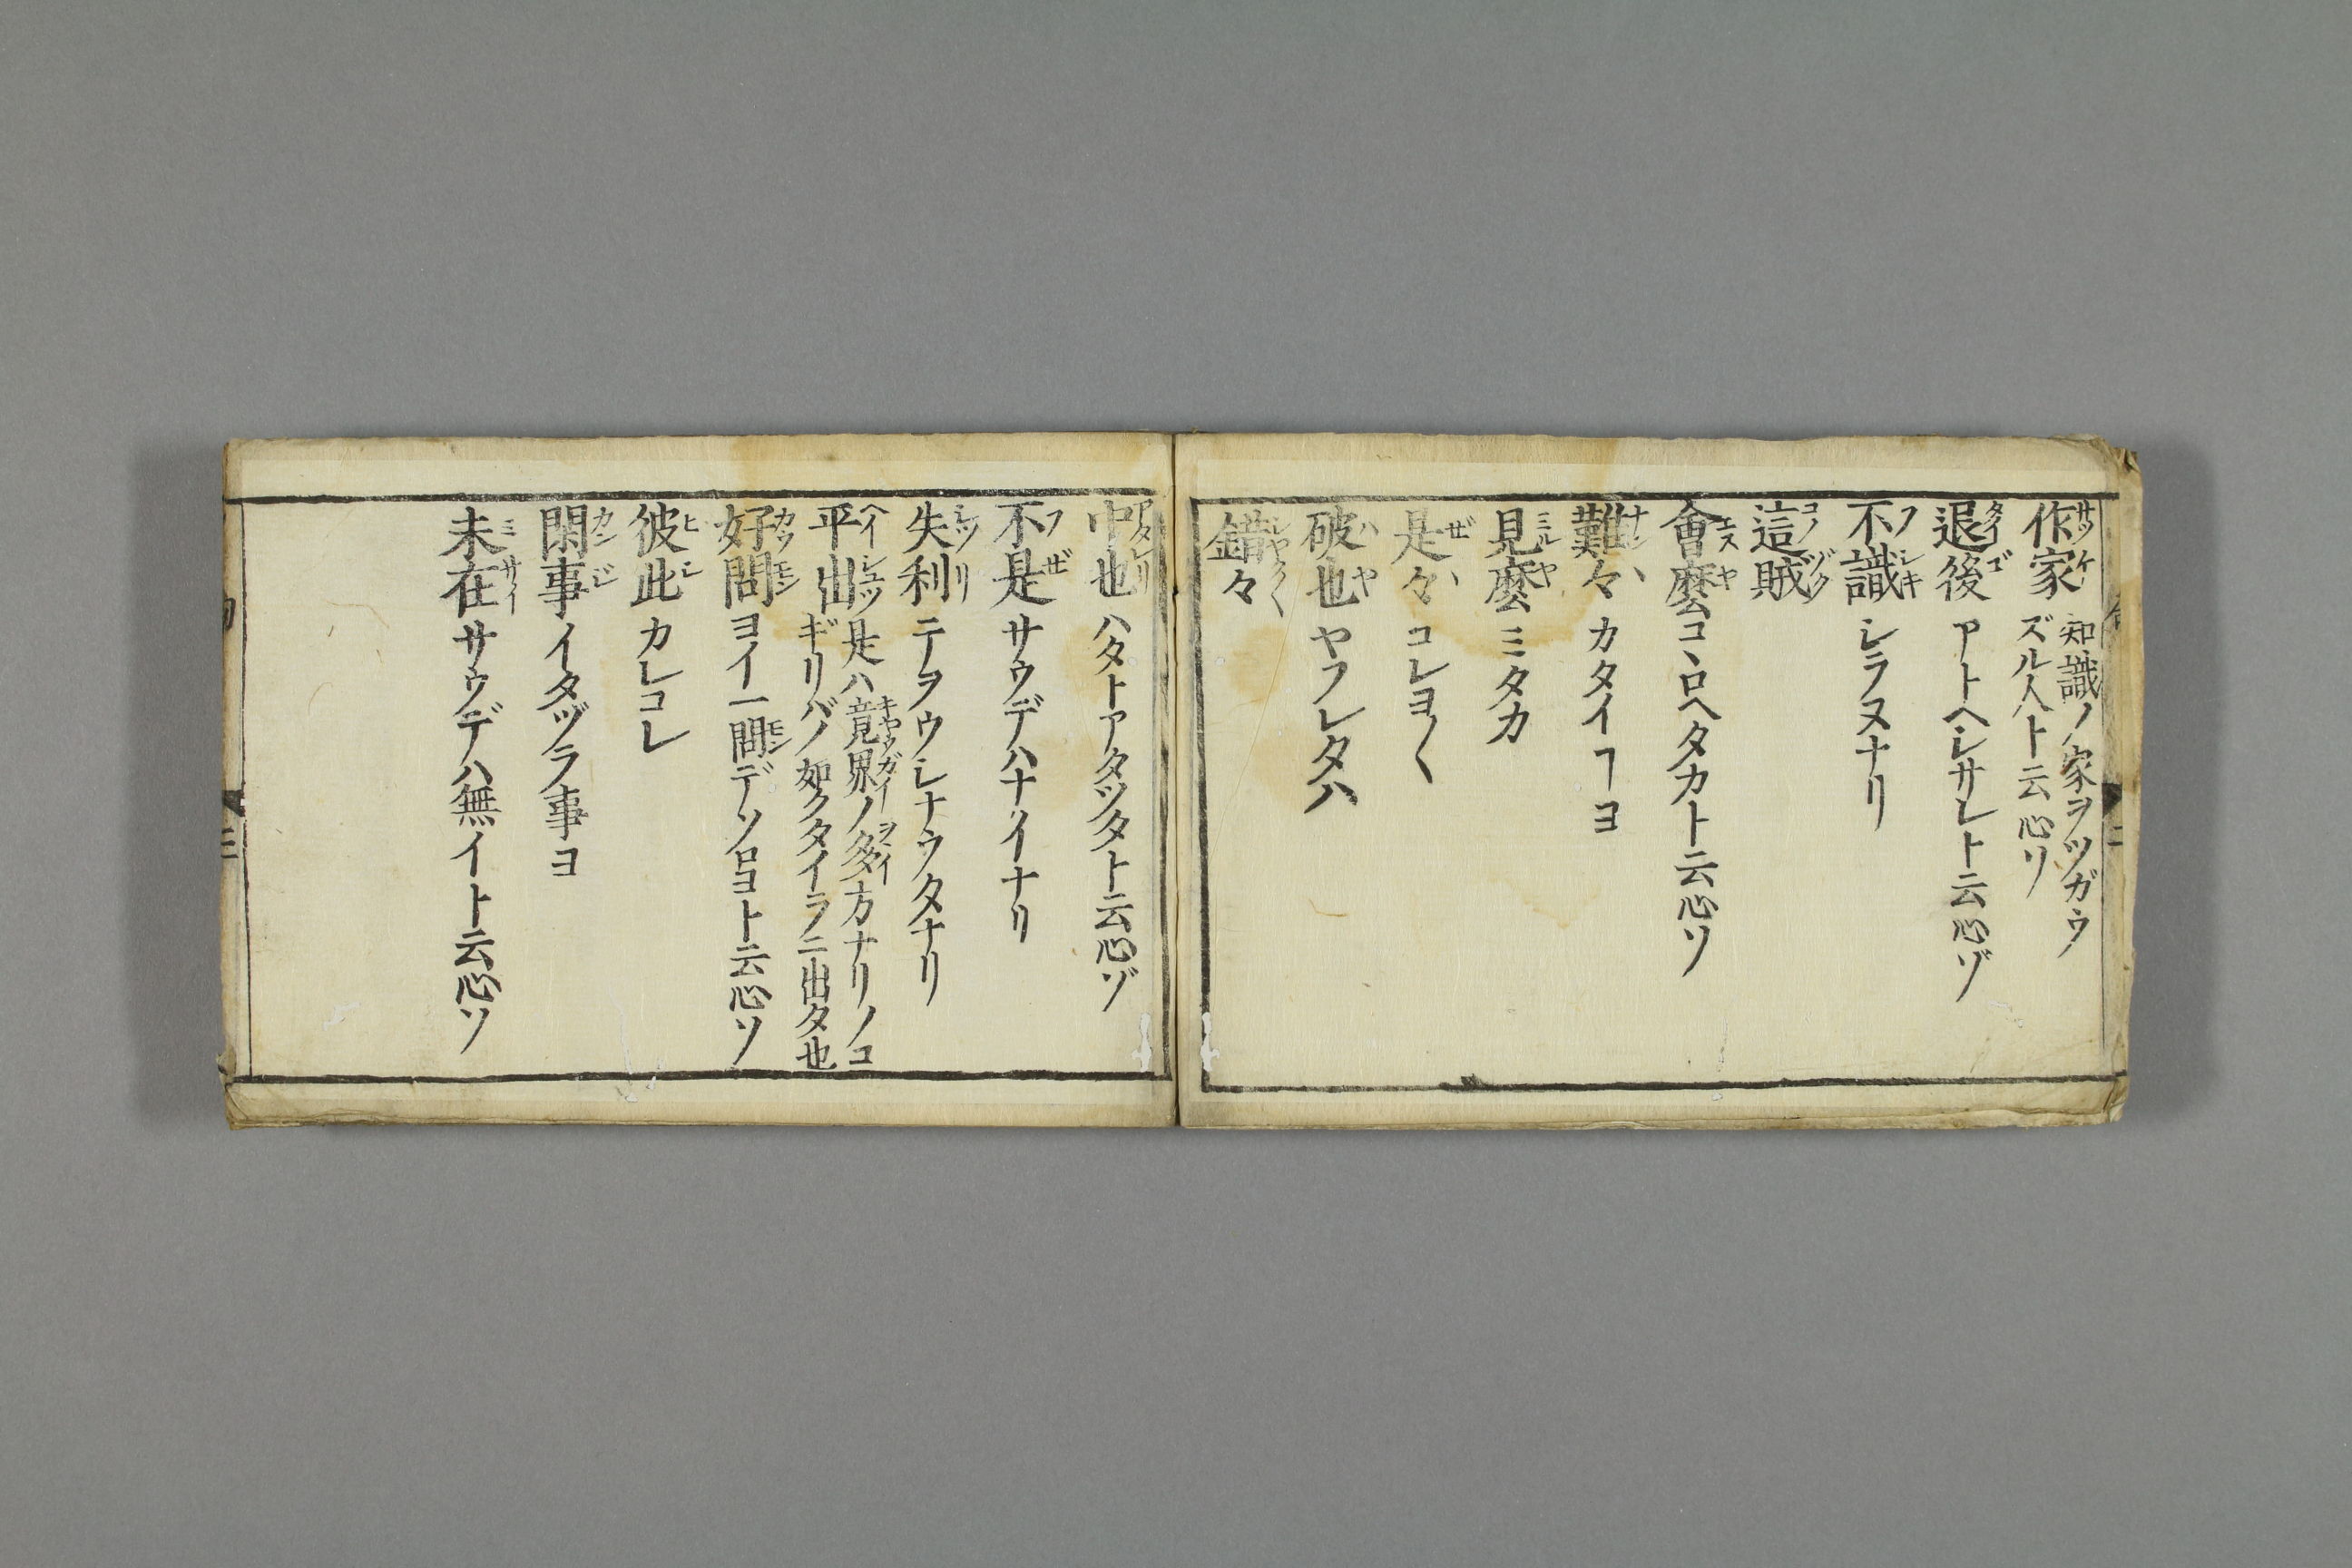 作家 知識ノ家ヲツガウ
ズル人ト云心ソ
退後 アトヘシサレト云心ゾ
不識 シラヌナリ
這賊
會麼 コヽロヘタカト云心ソ
難々 カタイヿヨ
見麼 ミタカ
是々 コレヨ〱
破也 ヤフレタハ
錯々
中也 ハタトアタツタト云心ゾ
不是 サウデハナイナリ
失利 テヲウシナウタナリ
平出 是ハ竟界ノ多方ナリノコ
ギリバノ如クタイラニ出タ也
好問 ヨイ一問デソロヨト云心ソ
彼此 カレコレ
閑事 イタヅラ事ヨ
未在 サウデハ無イト云心ソ
三